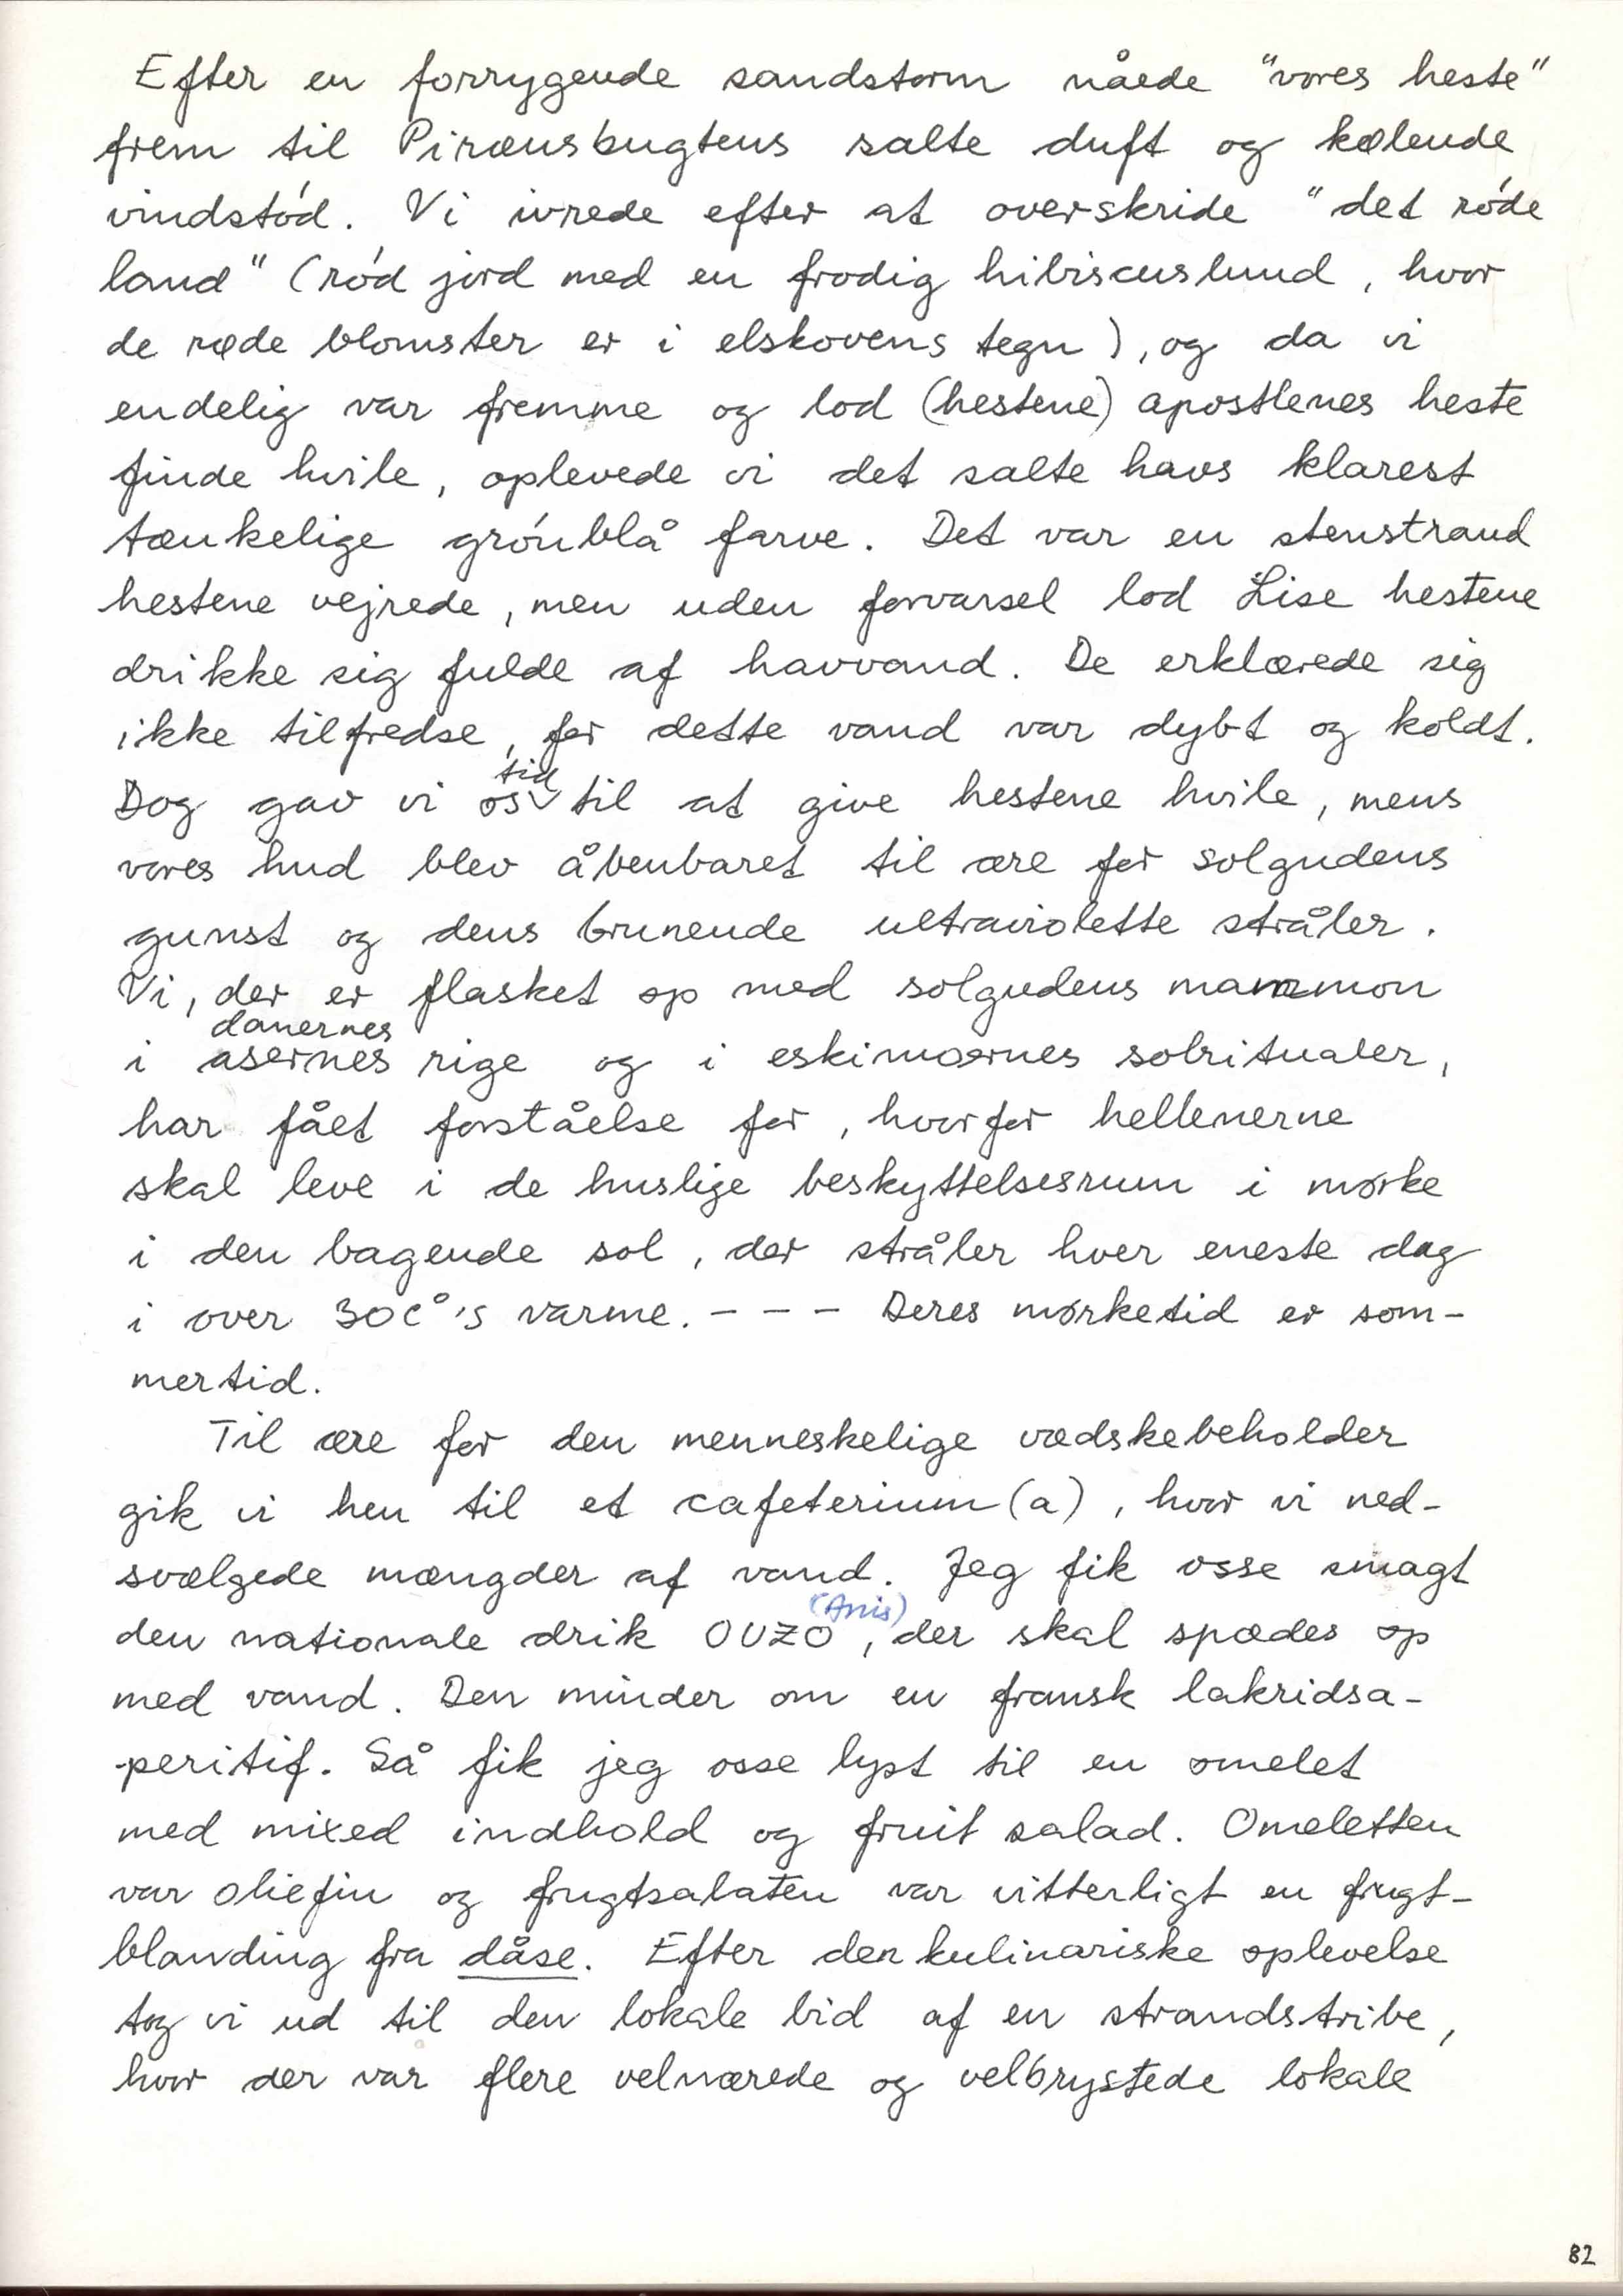 Efter en forrygende sandstorm nåede "vores heste"
frem til Piræusbugtens salte duft og kølende
vindstød. Vi ivrede efter at overskride "det røde
land" (rød jord med en frodig hibiscuslund, hvor
de røde blomster er i elskovens tegn), og da vi
endelig var fremme og lod (hestene) apostlenes heste
finde hvile, oplevede vi det salte havs klarest
tænkelige grønblå farve. Det var en stenstrand
hestene vejrede, men uden forvarsel lod Lise hestene
drikke sig fulde af havvand. De erklærede sig
ikke tilfredse, før dette vand var dybt og koldt.
Dog gav vi os tid til at give hestene hvile, mens
vores hud blev åbenbaret til ære for solgudens
gunst og dens brunende ultraviolette stråler.
Vi, der er flasket op med solgudens mammon
danernes
i asernes rige og i eskimoernes solritualer,
har fået forståelse for, hvorfor hellenerne
skal leve i de huslige beskyttelsesrum i mørke
i den bagende sol, der stråler hver eneste dag
i over 30C°'s varme. - - - Deres mørketid er som-
mertid.
Til ære for den menneskelige vædskebeholder
gik vi hen til et cafeterium(a), hvor vi ned-
svælgede mængder af vand. Jeg fik osse smagt
den nationale drik OUZO (Anis), der skal spædes op
med vand. Den minder om en fransk lakridsa-
peritif. Så fik jeg osse lyst til en omelet
med mixed indhold og fruit salad. Omeletten
var oliefin og frugtsalaten var vitterligt en frugt-
blanding fra dåse. Efter den kulinariske oplevelse
tog vi ud til den lokale bid af en strandstribe,
hvor der var flere velnærede og velbrystede lokale
82